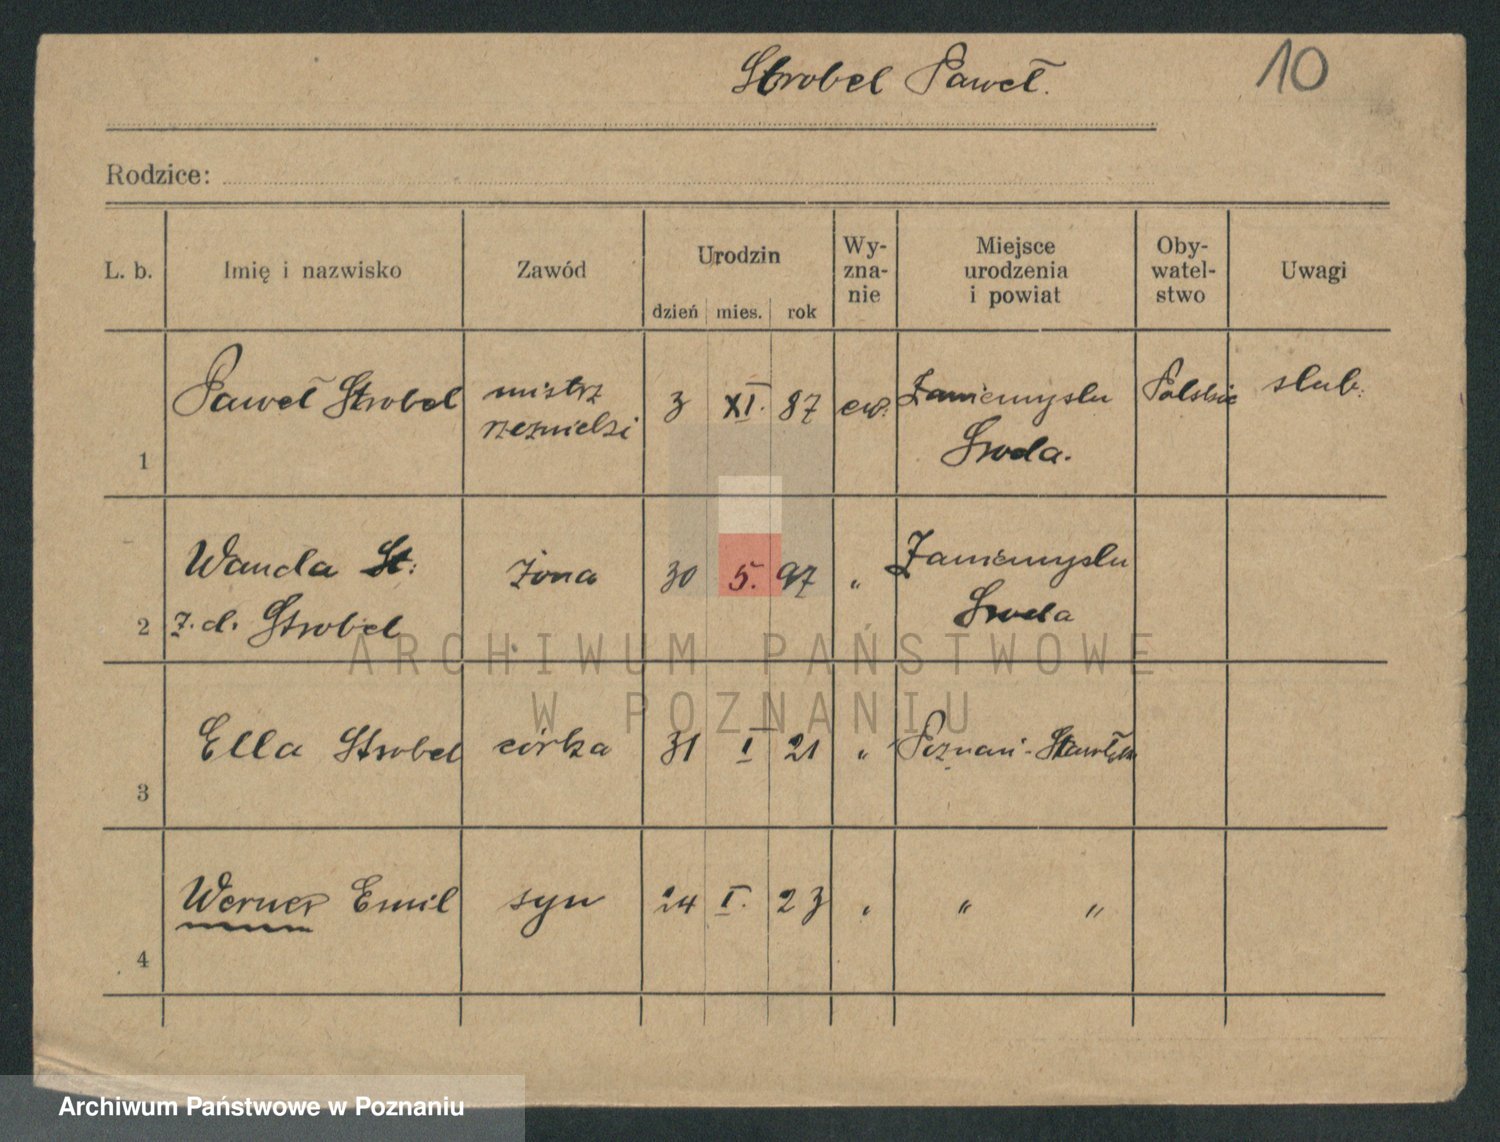 Strobel Paweł.
10
Rodzice:
L. b.
Imię i nazwisko
Zawód
Urodzin
dzień mies. rok
Wy-
zna-
nie
Miejsce
urodzenia
i powiat
Oby-
watel-
stwo
Uwagi
1
Paweł Strobel
mistrz
rzeźnicki
3 XI. 87
ew.
Zaniemyslu
Sroda.
Polskie
slub.
2
Wanda St:
z. d. Strobel
żona
30 5. 97
"
Zaniemyslu
Sroda
3
Ella Strobel
córka
31 I 21
"
Poznań-
4
Werner Emil
syn
24 I. 23
"
" "
ARCHIWUM PAŃSTWOWE
W POZNANIU
Archiwum Państwowe w Poznaniu